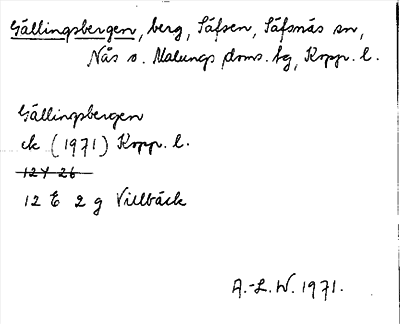 Gällingsbergen, berg, Säfsen, Säfsnäs sn,
Nås o. Malungs doms. tg, Kopp. l.
Gällingsbergen
ek (1971) Kopp. l.
12 E 2 g Villbäck
A.-L. W. 1971.